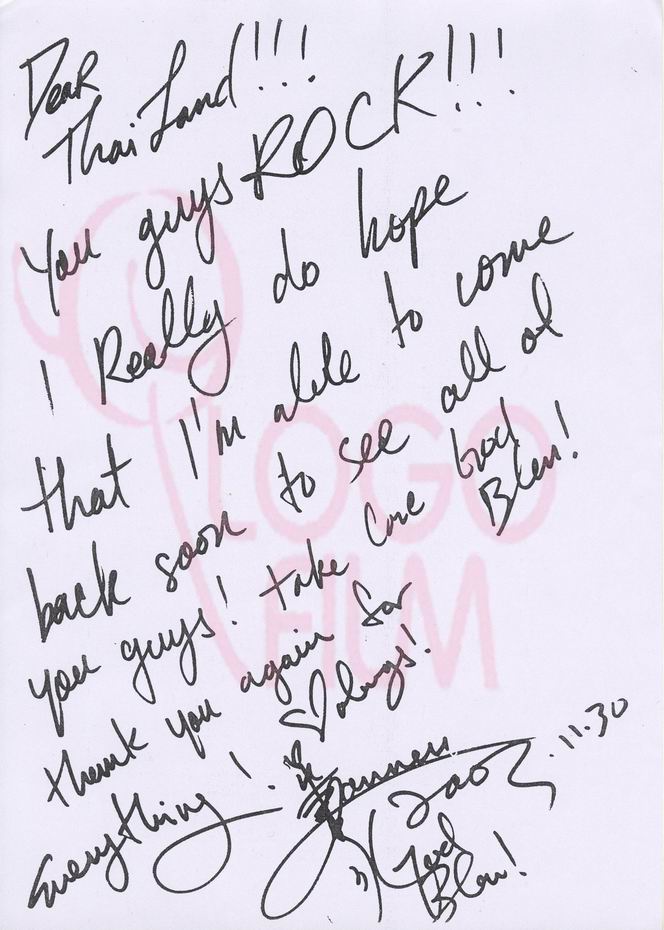 Dear
Thailand!!!
You guys ROCK!!!
I Really do hope
that I'm able to come
back soon to see all of
you guys! take care God Bless!
thank you again for
everything!
♡ always!
Vanness
2002.11.30
God Bless!
LOGO
FILM